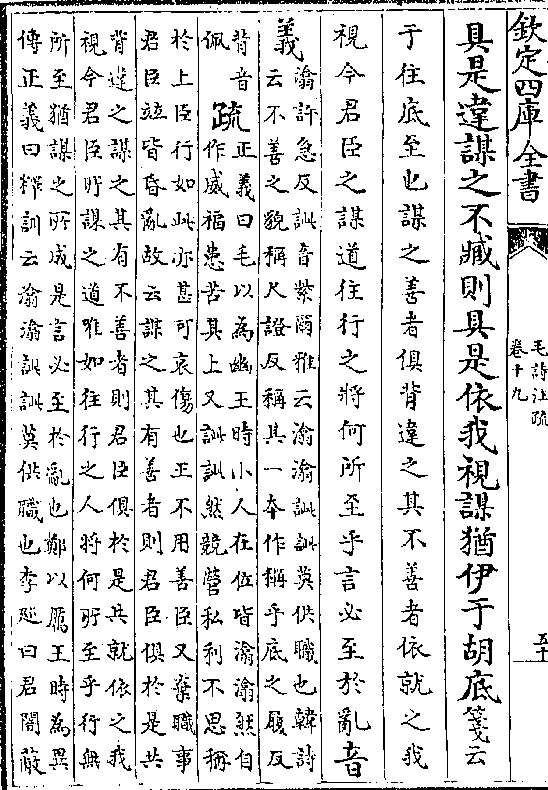 欽定四庫全書
毛詩注疏
卷十九
五十
具是違謀之不臧則具是依我視謀猶伊于胡底箋云
于往底至也謀之善者俱背違之其不善者依就之我
視今君臣之謀道往行之將何所至乎言必至於亂音
義潝許急反訿音紫爾雅云潝潝訿訿莫供職也韓詩
云不善之貌稱尺證反稱其一本作稱乎底之履反
背音
佩
疏正義曰毛以為幽王時小人在位皆潝潝然自
作威福患苦其上又訿訿然競營私利不思稱
於上臣行如此亦甚可哀傷也王不用善臣又棄職事
君臣並皆昏亂故云謀之其有善者則君臣俱於是共
背違之謀之其有不善者則君臣俱於是共就依之我
視今君臣所謀之道唯如往行之人將何所至乎行無
所至猶謀之所成是言必至於亂也鄭以厲王時為異
傳正義曰釋訓云潝潝訿訿莫供職也李廵曰君闇蔽